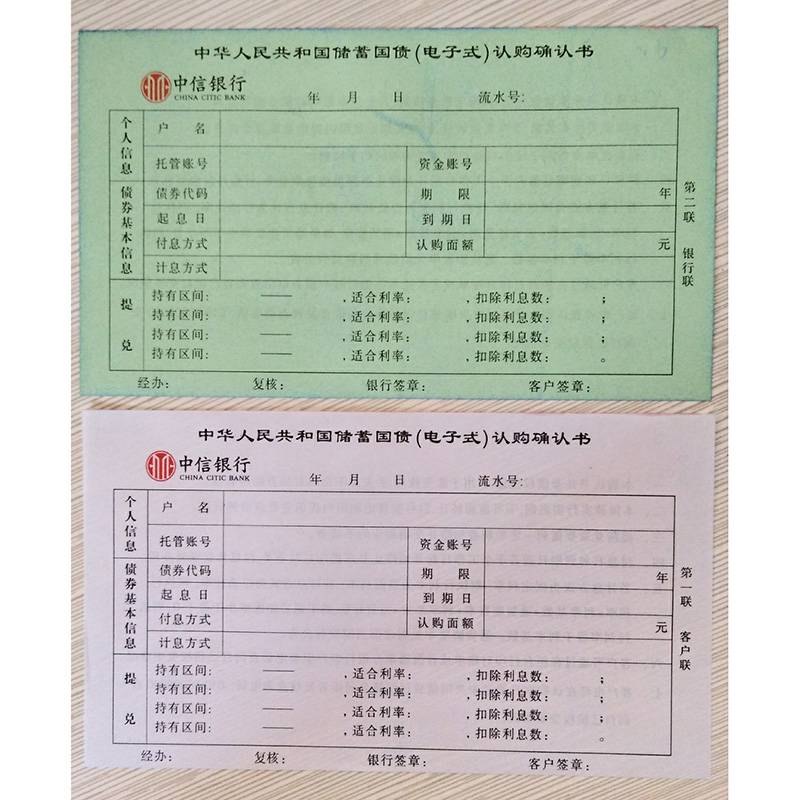 中华人民共和国储蓄国债(电子式)认购确认书
中信银行
CHINA CITIC BANK
年 月 日 流水号:
个人信息
户 名
托管账号 资金账号
债券基本信息
债券代码 期 限 年
起息日 到期日
付息方式 认购面额 元
计息方式
提 兑
持有区间: —— ,适合利率: ,扣除利息数: ;
持有区间: —— ,适合利率: ,扣除利息数: ;
持有区间: —— ,适合利率: ,扣除利息数: ;
持有区间: —— ,适合利率: ,扣除利息数: 。
第二联 银行联
经办: 复核: 银行签章: 客户签章:
中华人民共和国储蓄国债(电子式)认购确认书
中信银行
CHINA CITIC BANK
年 月 日 流水号:
个人信息
户 名
托管账号 资金账号
债券基本信息
债券代码 期 限 年
起息日 到期日
付息方式 认购面额 元
计息方式
提 兑
持有区间: —— ,适合利率: ,扣除利息数: ;
持有区间: —— ,适合利率: ,扣除利息数: ;
持有区间: —— ,适合利率: ,扣除利息数: ;
持有区间: —— ,适合利率: ,扣除利息数: 。
第一联 客户联
经办: 复核: 银行签章: 客户签章: